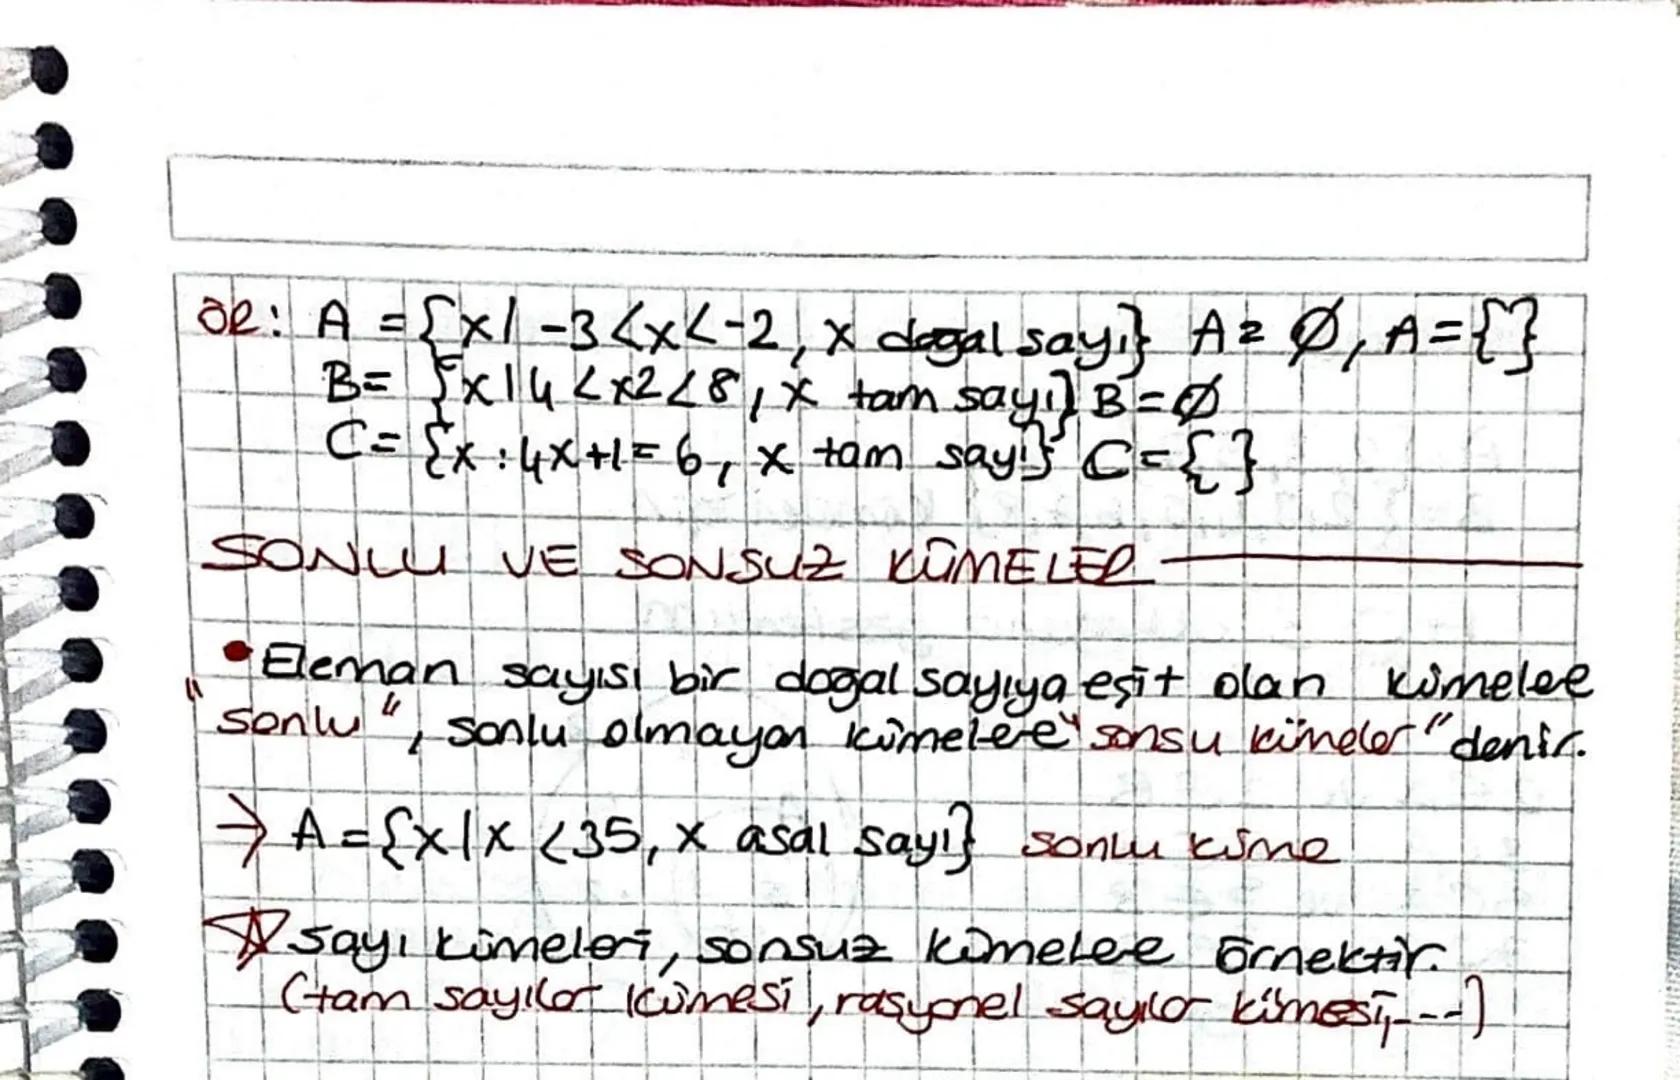 ÖR: A = {x | -3 < x < -2, x doğal sayı} A = Ø, A = { }
B = {x | 4 < x2 < 8, x tam sayı} B = Ø
C = {x : 4x+1 = 6, x tam sayı} C = { }
SONLU VE SONSUZ KÜMELER
• Eleman sayısı bir doğal sayıya eşit olan kümelere
"sonlu", sonlu olmayan kümelere "sonsu kümeler" denir.
→ A = {x | x < 35, x asal sayı} sonlu küme
☆ sayı kümeleri, sonsuz kümelere örnektir.
(tam sayılar kümesi, rasyonel sayılar kümesi, ---)